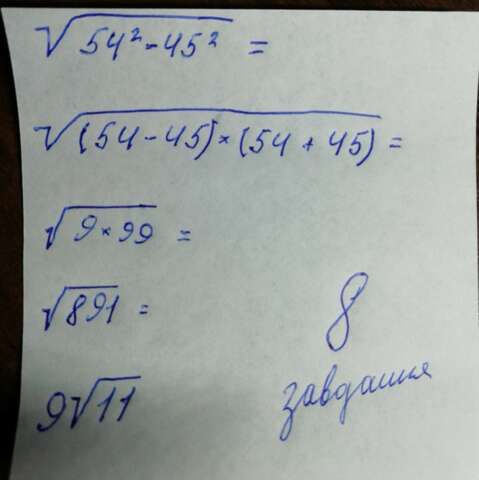 √(54² - 45²) =
√((54 - 45) × (54 + 45)) =
√(9 × 99) =
√891 =
9√11
8
завдання